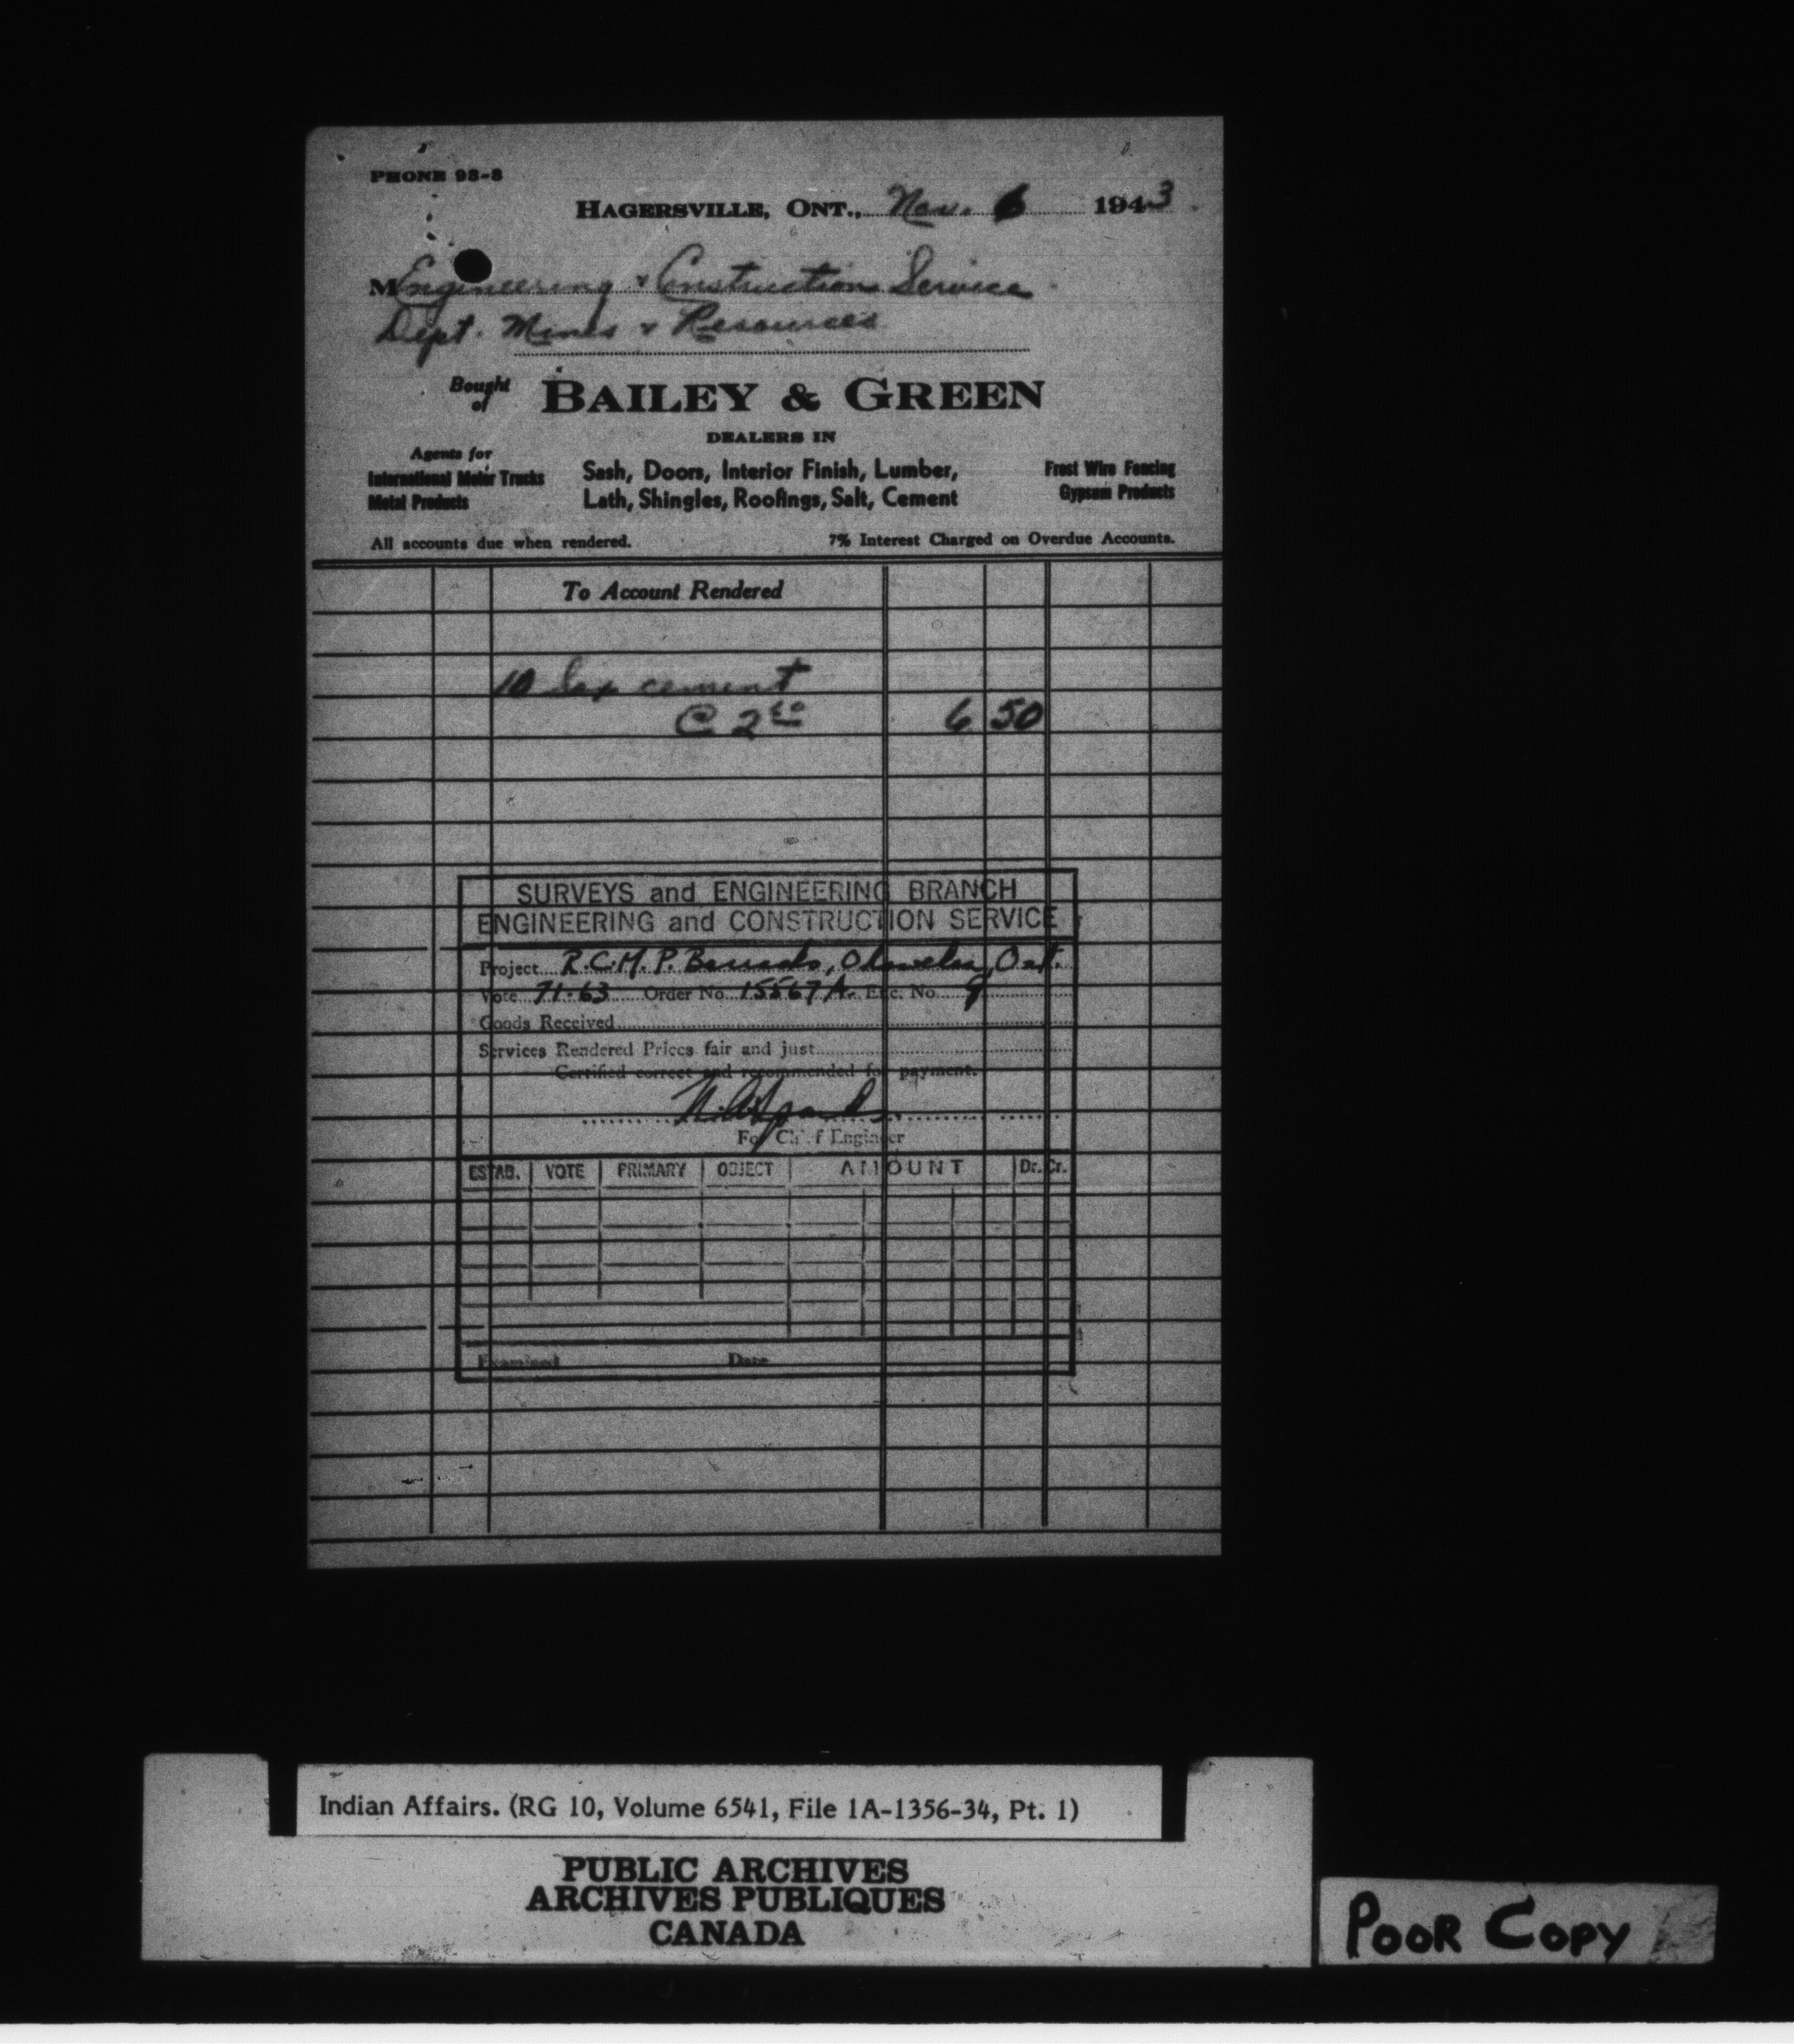 PHONE 98-8
HAGERSVILLE, ONT., Nov. 6 1943
M Engineering & Construction Service
Dept. Mines & Resources
Bought of BAILEY & GREEN
DEALERS IN
Agents for
International Motor Trucks
Metal Products
Sash, Doors, Interior Finish, Lumber,
Lath, Shingles, Roofings, Salt, Cement
Frost Wire Fencing
Gypsum Products
All accounts due when rendered. 7% Interest Charged on Overdue Accounts.
To Account Rendered
10 Sax cement
C 2 6 50
SURVEYS and ENGINEERING BRANCH
ENGINEERING and CONSTRUCTION SERVICE
Project R.C.M.P. Barracks, Ohsweken, Ont.
Vote 71-63 Order No. 15567 A. Enc. No. 9
Goods Received
Services Rendered Prices fair and just
Certified correct and recommended for payment.
For Chief Engineer
ESTAB. VOTE PRIMARY OBJECT AMOUNT Dr. Cr.
Examined Date
Indian Affairs. (RG 10, Volume 6541, File 1A-1356-34, Pt. 1)
PUBLIC ARCHIVES
ARCHIVES PUBLIQUES
CANADA
POOR COPY